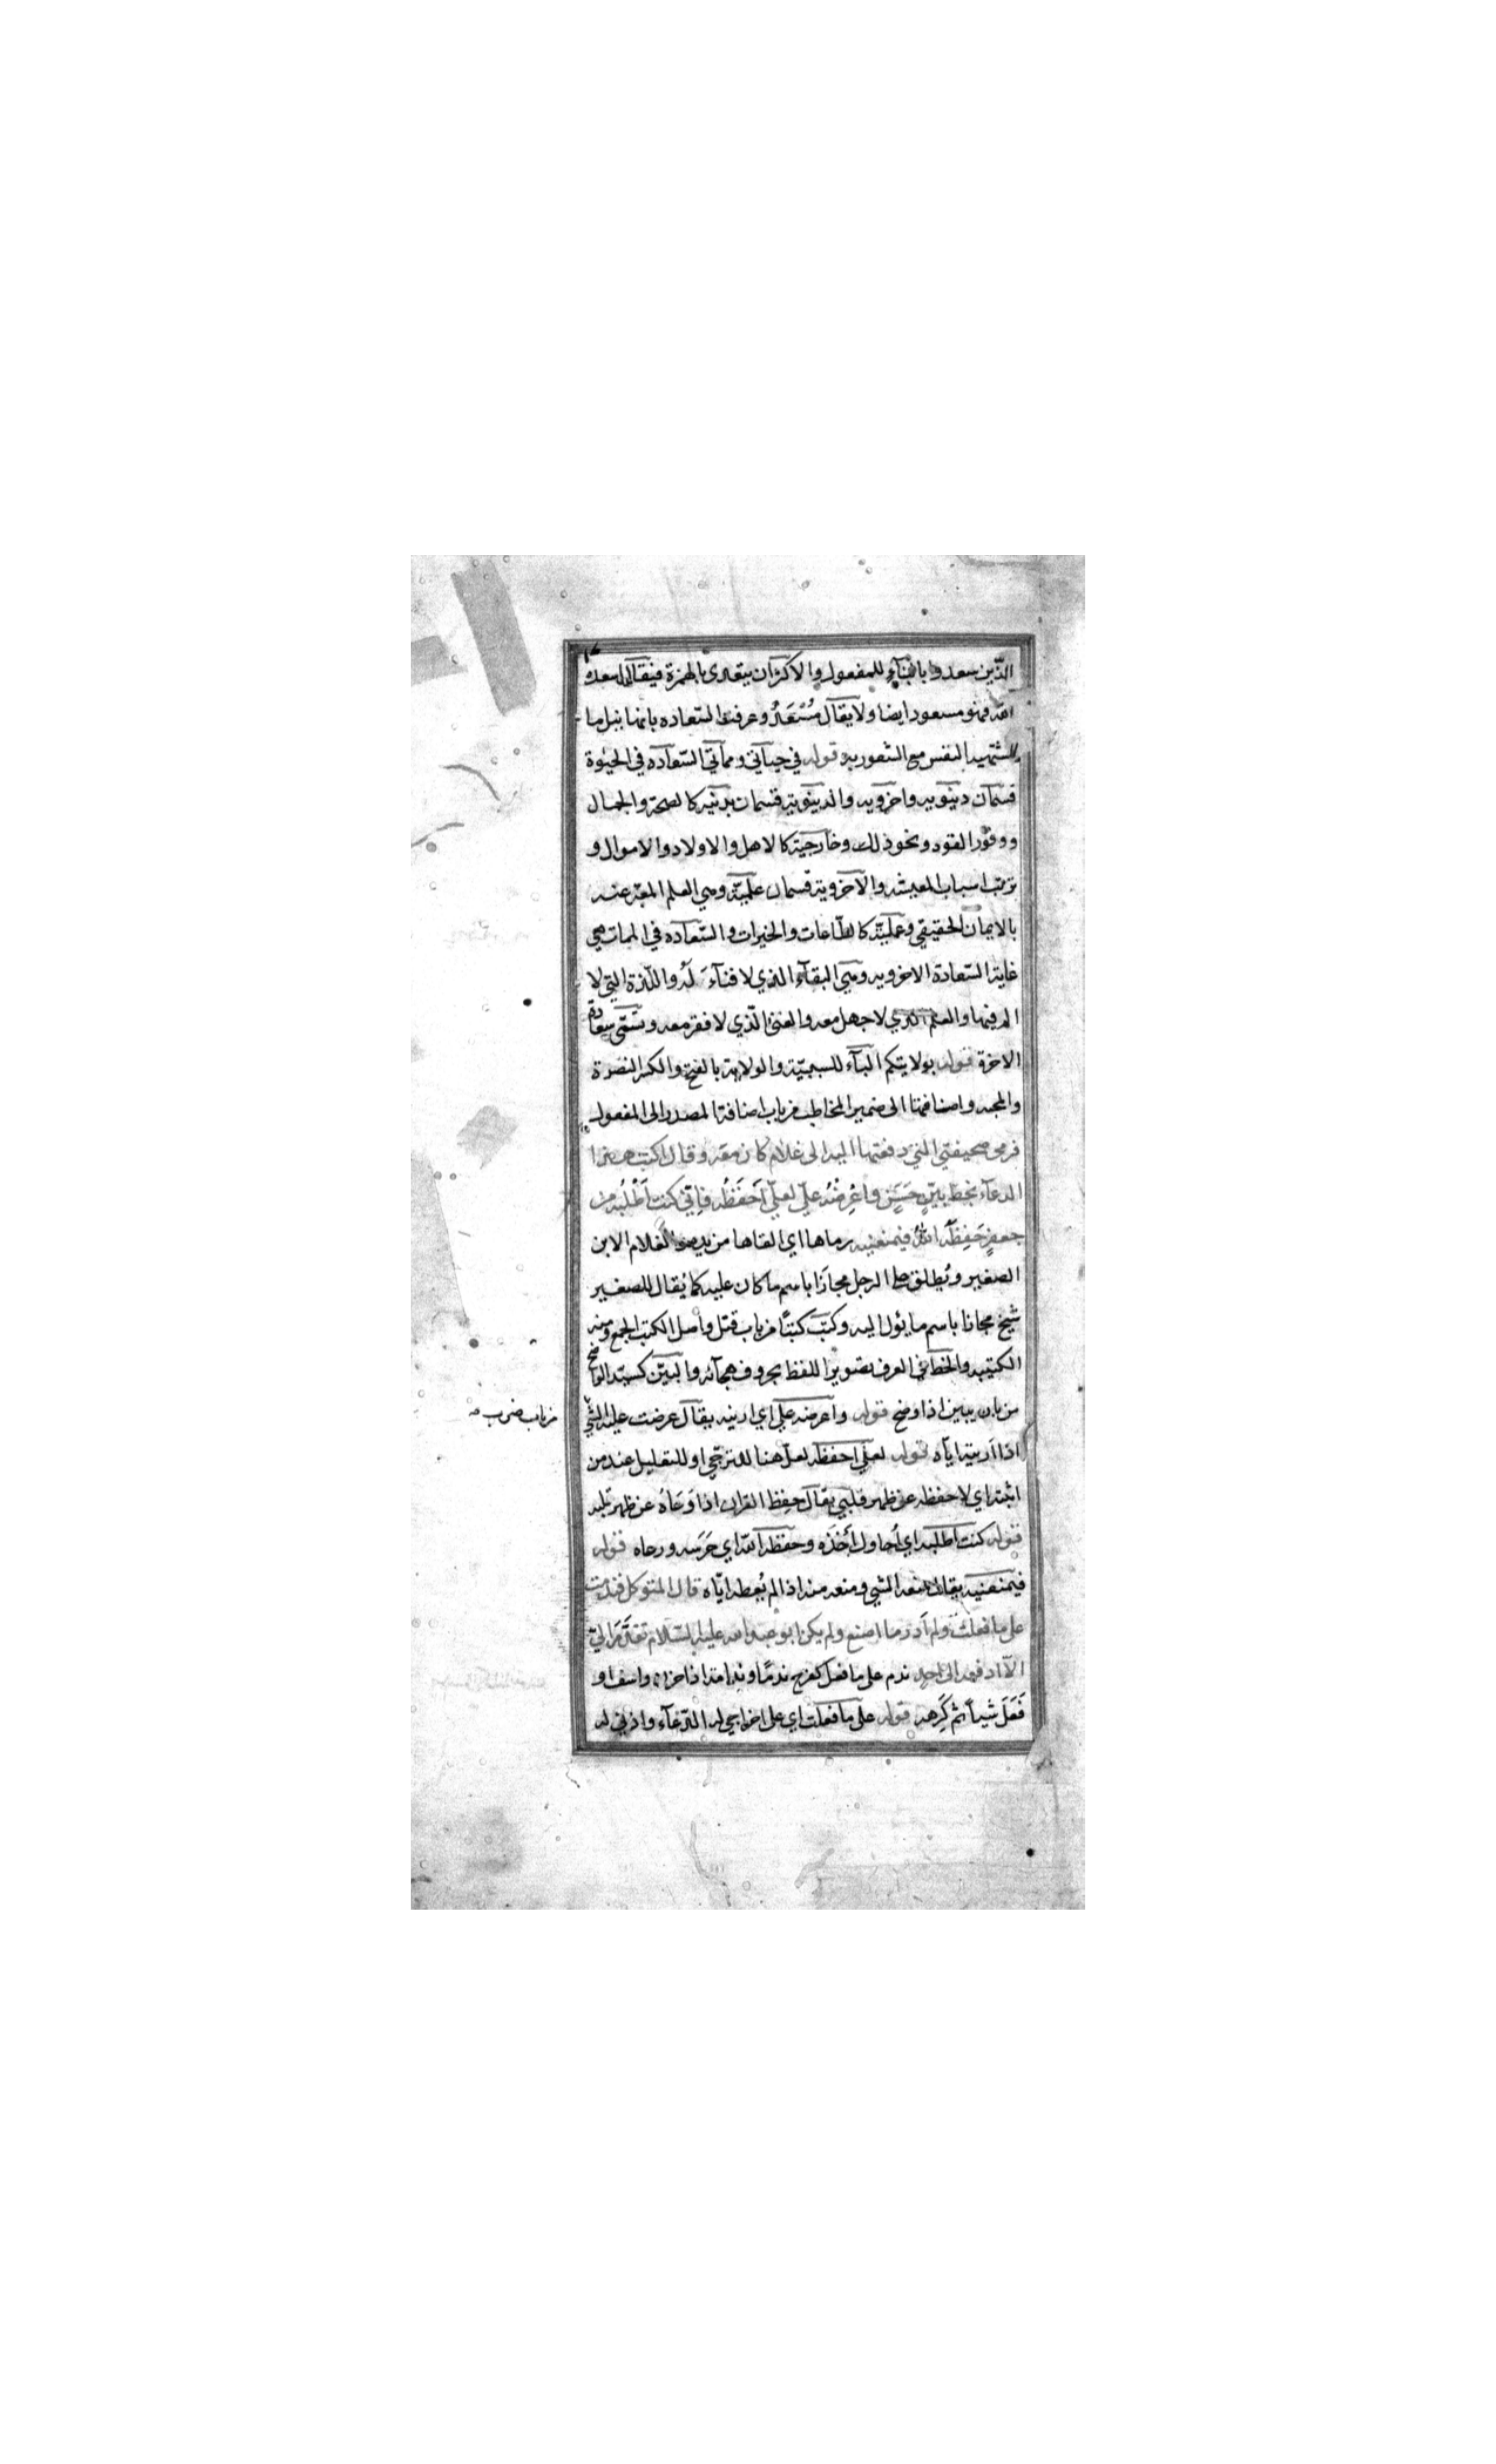 الذين سعدوا بالبناء للمفعول والاكثران يتعدى بالهمزة فيقال اسعده
الله فهو مسعود ايضا ولا يقال مُسْعَدٌ وعرفت السعاده بانها نيل ما
تشتهيه النفس مع الشعور به قوله في حياتي ومماتي السعاده في الحيوة
قسمان دينويه واخرويه والدينوية قسمان بدنيه كالصحة والجمال
ووفور القوه ونحو ذلك وخارجية كالاهل والاولاد والاموال و
ترتب اسباب المعيشه والآخروية قسمان علمية وهي العلم المعبر عنه
بالايمان الحقيقي وعملية كالطاعات والخيرات والسعاده في الممات هي
غاية السعادة الاخرويه وهي البقآء الذي لا فنآء لَهُ واللذة التي لا
الم فيها والعلم الذي لا جهل معه والغنى الّذي لا فقر معه وتسمّى سعادة
الاخرة قوله بولايتكم البآء للسببيّة والولاية بالفتح والكسر النصرة
والمجبه واضافتها الى ضمير المخاطب من باب اضافة المصدر الى المفعول
فرمى صحيفتي التي دفعتها اليه الى غلام كان معه وقال اكتب هذا
الدعآء بخط بيّن حَسَنٍ واعْرِضْهُ عليّ لعلّي اَحفَظُه فانّي كنت اَطْلُبُه من
جعفرٍ حَفِظَهُ اللهُ فيمنعنيه رماها اي القاها من يده والغلام الابن
الصغير ويُطلق على الرجل مجازًا باسم ما كان عليه كما يُقال للصغير
شيخ مجازا باسم ما يئول اليه وكتب كتبًا من باب قتل واصل الكتب الجمع ومنه
الكتيبه والخط في العرف تصوير اللفظ بحروف هجآئه والبيّن كسيّد الواضح
من بان يبين اذا وضح قوله واعرضه علي اي ارنيه يقال عرضت عليه الشي
من باب ضرب مه
اذا اريته ايّاه قوله لعلّي احفظه لعلّ هنا للترجّي او للتعليل عند من
اثبته اي لاحفظه عن ظهر قلبي يقال حفِظ القران اذا وَعَاهُ عن ظهر قلبه
قوله كنت اطلبه اي اُحاول اَخْذَه وحفظه الله اي حَرَسه ورعاه قوله
فيمنعنيه يقال منعه الشي ومنعه منه اذا لم يُعطه ايّاه قال المتوكل فندمت
على ما فعلت ولم اَدر ما اصنع ولم يكن ابو عبد الله عليه السّلام تقدَّمَ اليَّ
الآ ادفعه الى احد ندم على ما فعل كفرح ندمًا وندامة اذا حزن واسف او
فَعَلَ شيأ ثم كَرِهه قوله على ما فعلت اي على اخراجي له الدعآء واذني له